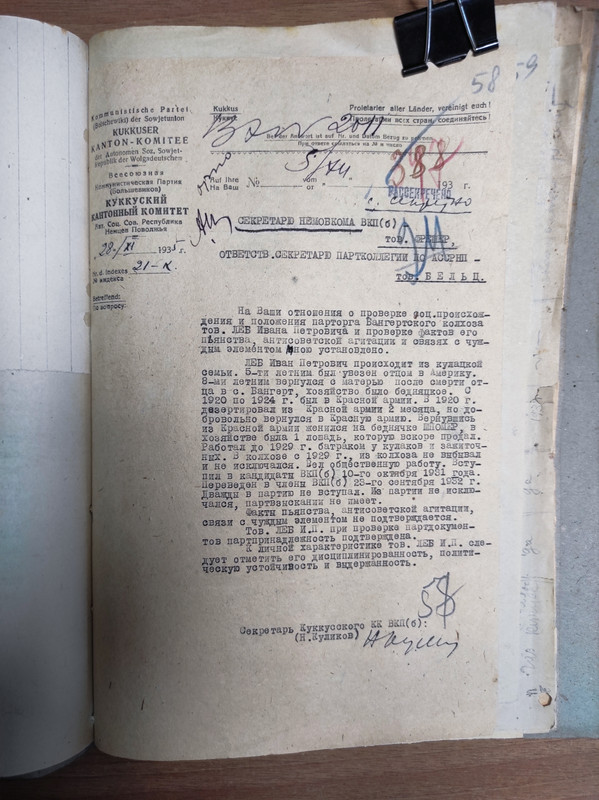 58
Kommunistische Partei
(Bolschewiki) der Sowjetunion
KUKKUSER
KANTON-KOMITEE
der Autonomen Soz. Sowjet-
republik der Wolgadeutschen
Всесоюзная
Коммунистическая Партия
(Большевиков)
КУККУСКИЙ
КАНТОННЫЙ КОМИТЕТ
Авт. Соц. Сов. Республики
Немцев Поволжья
28-/XI 1935 г.
Nr. d. Indexes
№ индекса 21-К.
Betreffend:
По вопросу:
Kukkus
Куккус
Proletarier aller Länder, vereinigt euch!
Пролетарии всех стран, соединяйтесь!
Bei der Antwort ist auf Nr. und Datum Bezug zu nehmen
При ответе ссылаться на № и число
Auf Ihre
На Ваш
№
vom
от
193 г.
РАССЕКРЕЧЕНО
СЕКРЕТАРЮ НЕМОБКОМА ВКП(б)
тов.
ОТВЕТСТВ.СЕКРЕТАРЮ ПАРТКОЛЛЕГИИ ПО АССРНП -
тов. БЕЛЬЦ.
На Ваши отношения о проверке соц.происхож-
дения и положения парторга Бангертского колхоза
тов. ЛЕБ Ивана Петровича и проверке фактов его
пьянства, антисоветской агитации и связях с чуж-
дым элементом мною установлено.
ЛЕБ Иван Петрович происходит из кулацкой
семьи. 5-ти летним был увезен отцом в Америку.
8-ми летним вернулся с матерью после смерти от-
ца в с. Бангерт, хозяйство было бедняцкое. С
1920 по 1924 г. был в Красной армии. В 1920 г.
дезертировал из Красной армии 2 месяца, но до-
бровольно вернулся в Красную армию. Вернувшись
из Красной армии женился на беднячке ШПОМЕР, в
хозяйстве была 1 лошадь, которую вскоре продал.
Работал до 1929 г. батраком у кулаков и зажиточ-
ных. В колхозе с 1929 г., из колхоза не выбывал
и не исключался. Вел общественную работу. Всту-
пил в кандидаты ВКП(б) 10-го октября 1931 года.
Переведен в члены ВКП(б) 23-го сентября 1932 г.
Дважды в партию не вступал. Из партии не исклю-
чался, партвзыскании не имеет.
Факты пьянства, антисоветской агитации,
связи с чуждым элементом не подтверждается.
Тов. ЛЕБ И.П. при проверке партдокумен-
тов партпринадлежность подтверждена.
К личной характеристике тов. ЛЕБ И.П. сле-
дует отметить его дисциплинированность, полити-
ческую устойчивость и выдержанность.
Секретарь Куккусского КК ВКП(б):
(Н.Куликов)